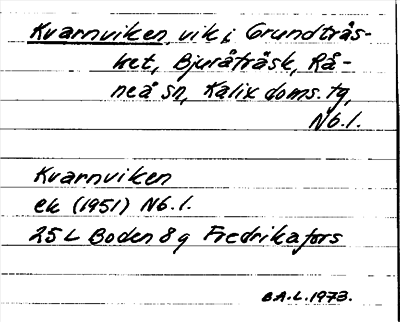 Kvarnviken, vik i Grundträs-
ket, Bjuråträsk, Rå-
neå sn, Kalix doms. tg,
Nb.l.
Kvarnviken
ek (1951) Nb.l.
25L Boden 8g Fredrikafors
B.A.L. 1973.